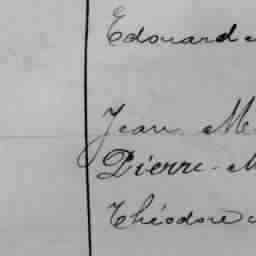 Edouard
Jean M
Pierre-M
Théodore